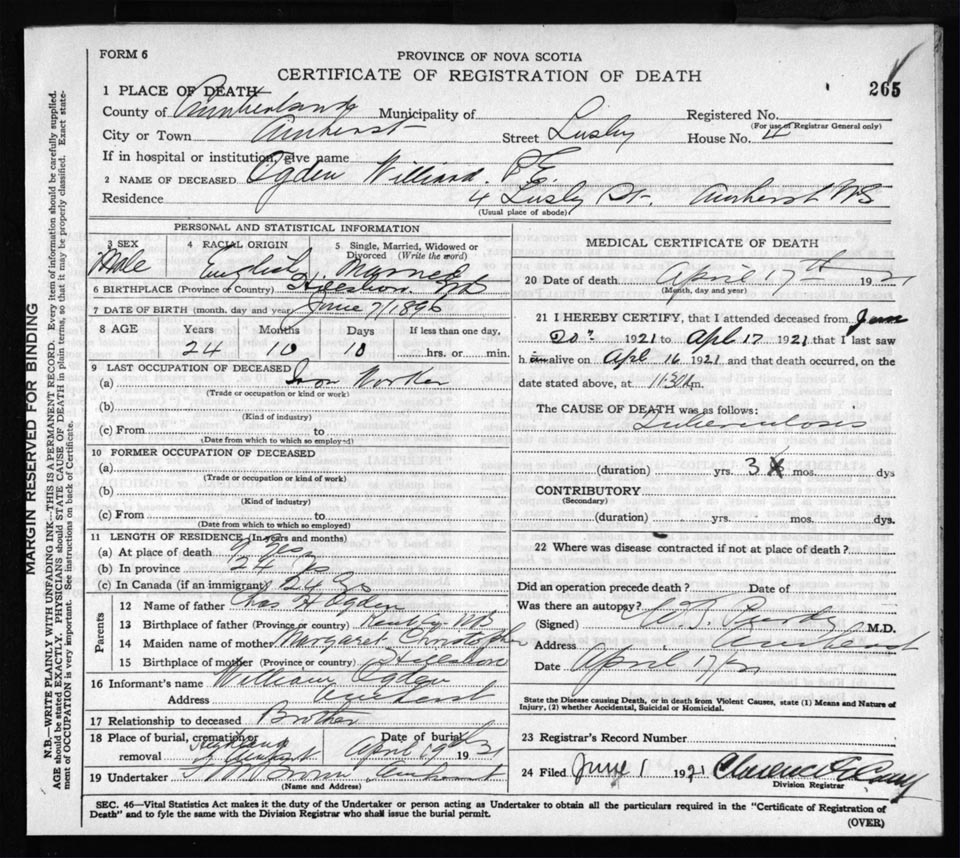 FORM 6
PROVINCE OF NOVA SCOTIA
CERTIFICATE OF REGISTRATION OF DEATH
265
1 PLACE OF DEATH
County of Cumberland Municipality of Registered No.
(For use of Registrar General only)
City or Town Amherst Street Lusby House No. 4
If in hospital or institution, give name
2 NAME OF DECEASED Ogden Williard. P.E.
Residence 4 Lusby St. Amherst NS
(Usual place of abode)
PERSONAL AND STATISTICAL INFORMATION
3 SEX 4 RACIAL ORIGIN 5 Single, Married, Widowed or Divorced (Write the word)
Male English Married
6 BIRTHPLACE (Province or Country)
7 DATE OF BIRTH (month, day and year) June 7/1896
8 AGE Years Months Days If less than one day,
24 10 10 hrs. or min.
9 LAST OCCUPATION OF DECEASED
(a) Iron Worker
(Trade or occupation or kind or work)
(b)
(Kind of industry)
(c) From to
(Date from which to which so employed)
10 FORMER OCCUPATION OF DECEASED
(a)
(Trade or occupation or kind of work)
(b)
(Kind of industry)
(c) From to
(Date from which to which so employed)
11 LENGTH OF RESIDENCE (In years and months)
(a) At place of death
(b) In province 24
(c) In Canada (if an immigrant) 24 yrs
Parents
12 Name of father Chas H Ogden
13 Birthplace of father (Province or country)
14 Maiden name of mother Margaret Christopher
15 Birthplace of mother (Province or country)
16 Informant's name William Ogden
Address Amherst
17 Relationship to deceased Brother
18 Place of burial, cremation or removal Highland Amherst
Date of burial April 19th 1931
19 Undertaker Brown Amherst
(Name and Address)
MEDICAL CERTIFICATE OF DEATH
20 Date of death April 17th 1921
(Month, day and year)
21 I HEREBY CERTIFY, that I attended deceased from Jan
20th 1921 to Apl 17 1921 that I last saw
h im alive on Apl 16 1921 and that death occurred, on the
date stated above, at 11:30 m.
The CAUSE OF DEATH was as follows:
Tuberculosis
(duration) yrs. 3 mos. dys
CONTRIBUTORY
(Secondary)
(duration) yrs. mos. dys.
22 Where was disease contracted if not at place of death?
Did an operation precede death? Date of
Was there an autopsy?
(Signed) Purdy M.D.
Address Amherst
Date April 17/21
State the Disease causing Death, or in death from Violent Causes, state (1) Means and Nature of
Injury, (2) whether Accidental, Suicidal or Homicidal.
23 Registrar's Record Number
24 Filed June 1 1921 Clarence
Division Registrar
SEC. 46—Vital Statistics Act makes it the duty of the Undertaker or person acting as Undertaker to obtain all the particulars required in the "Certificate of Registration of
Death" and to fyle the same with the Division Registrar who shall issue the burial permit.
(OVER)
MARGIN RESERVED FOR BINDING
N.B.—WRITE PLAINLY WITH UNFADING INK—THIS IS A PERMANENT RECORD. Every item of information should be carefully supplied.
AGE should be stated EXACTLY. PHYSICIANS should STATE CAUSE OF DEATH in plain terms, so that it may be properly classified. Exact state-
ment of OCCUPATION is very important. See instructions on back of Certificate.